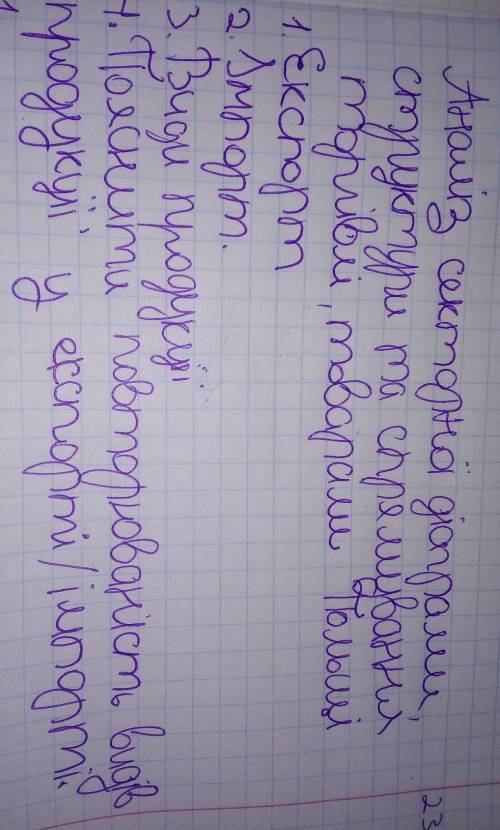 23
Аналіз секторної діаграми,
структури та спрямування
торгівлі, товарами Польщі
1. Експорт
2. Імпорт.
3. Види продукції
4. Пояснити повторюваність видів
продукції у експорті/імпорті.